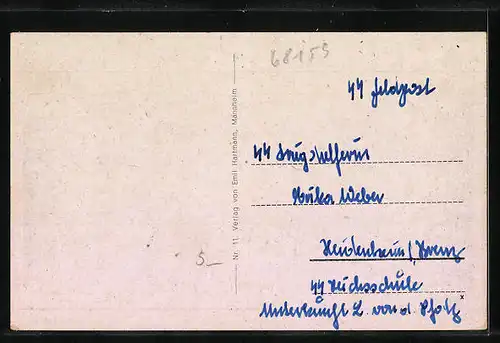 68159
44 Feldpost
44 Kriegshelferin
Erika Weber
Heidenheim/Brenz
44 Reichsschule
Unterkunft L. von d.
5_
Nr. 11 Verlag von Emil Hartmann, Mannheim